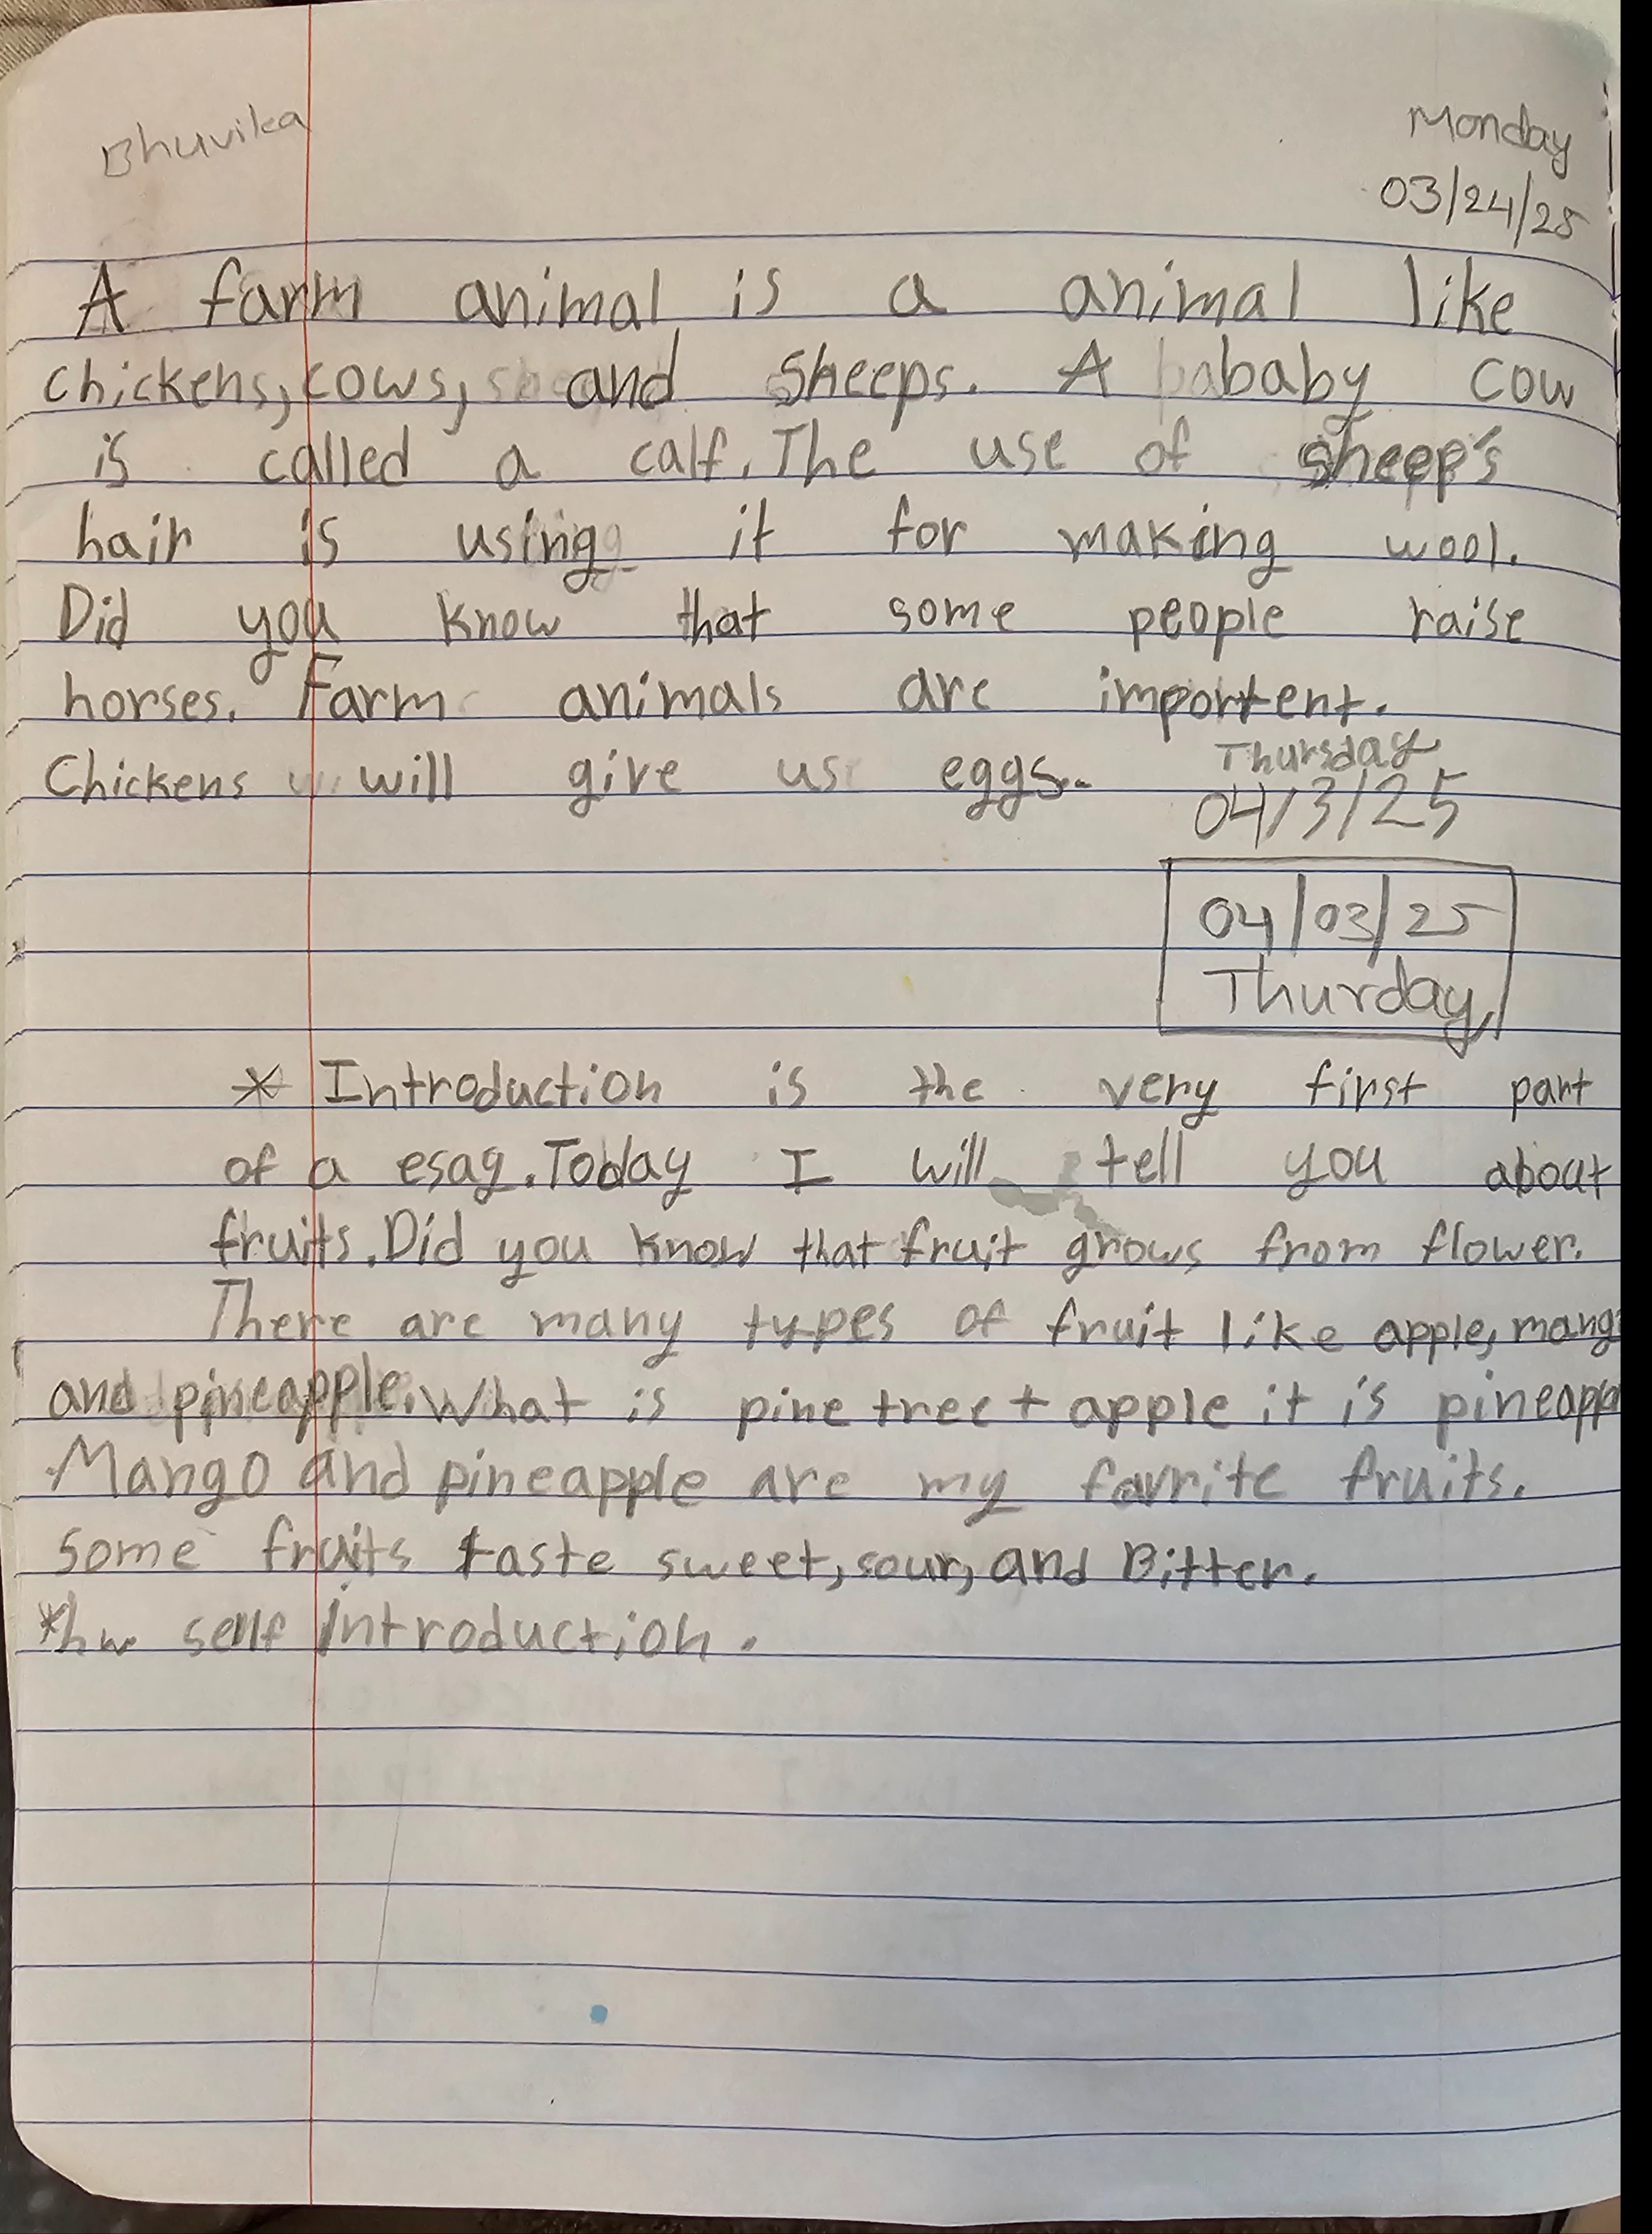 Bhuvika
Monday
03/24/25
A farm animal is a animal like
chickens, cows, and sheeps. A bababy cow
is called a calf. The use of sheep's
hair is using it for making wool.
Did you know that some people raise
horses. Farm animals are importent.
Chickens will give us eggs.
Thursday
04/3/25
04/03/25
Thurday
* Introduction is the very first part
of a esag. Today I will tell you about
fruits. Did you know that fruit grows from flower.
There are many types of fruit like apple, mang
and pineapple. What is pine tree + apple it is pineapple
Mango and pineapple are my favrite fruits.
some fruits taste sweet, sour, and Bitter.
*hw self introduction.